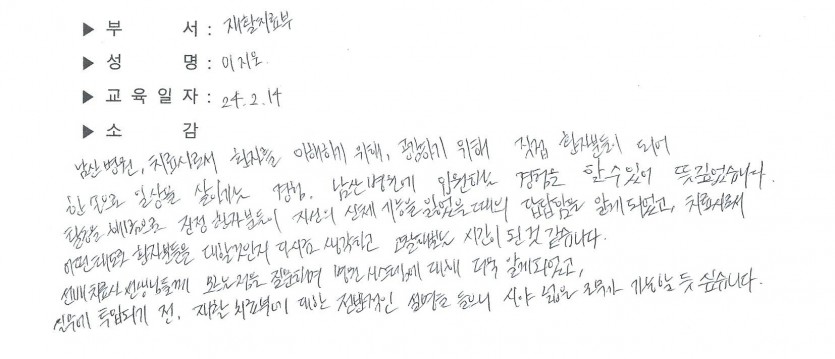 ▶ 부 서 : 재활치료부
▶ 성 명 : 이지운
▶ 교 육 일 자 : 24. 2. 14
▶ 소 감
남산병원, 치료사로서 환자를 이해하기 위해, 공감하기 위해 직접 환자분들이 되어
한 손으로 일상을 살아가는 경험, 남산병원에 입원하는 경험을 할 수 있어 뜻깊었습니다.
활동을 함으로 진정 환자분들이 자신의 신체 기능을 잃었을 때의 답답함을 알게 되었고, 치료사로서
어떤 태도로 환자분들을 대할것인지 다시금 생각하고 시간이 된 것 같습니다.
선배 치료사 선생님들께 모르는 것을 질문하며 병원 시스템에 대해 더욱 알게되었고,
실무에 투입되기 전, 재활 치료부에 대한 전반적인 설명을 들으니 시야 넓은 근무가 가능할 듯 싶습니다.